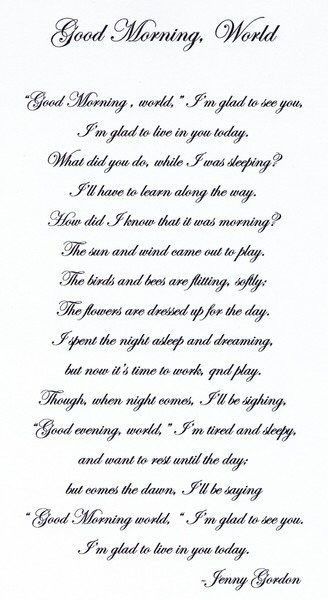 Good Morning, World
"Good Morning , world, " I'm glad to see you,
I'm glad to live in you today.
What did you do, while I was sleeping?
I'll have to learn along the way.
How did I know that it was morning?
The sun and wind came out to play.
The birds and bees are flitting, softly;
The flowers are dressed up for the day.
I spent the night asleep and dreaming,
but now it's time to work, qnd play.
Though, when night comes, I'll be sighing,
"Good evening, world, " I'm tired and sleepy,
and want to rest until the day;
but comes the dawn, I'll be saying
" Good Morning world, " I'm glad to see you.
I'm glad to live in you today.
-Jenny Gordon